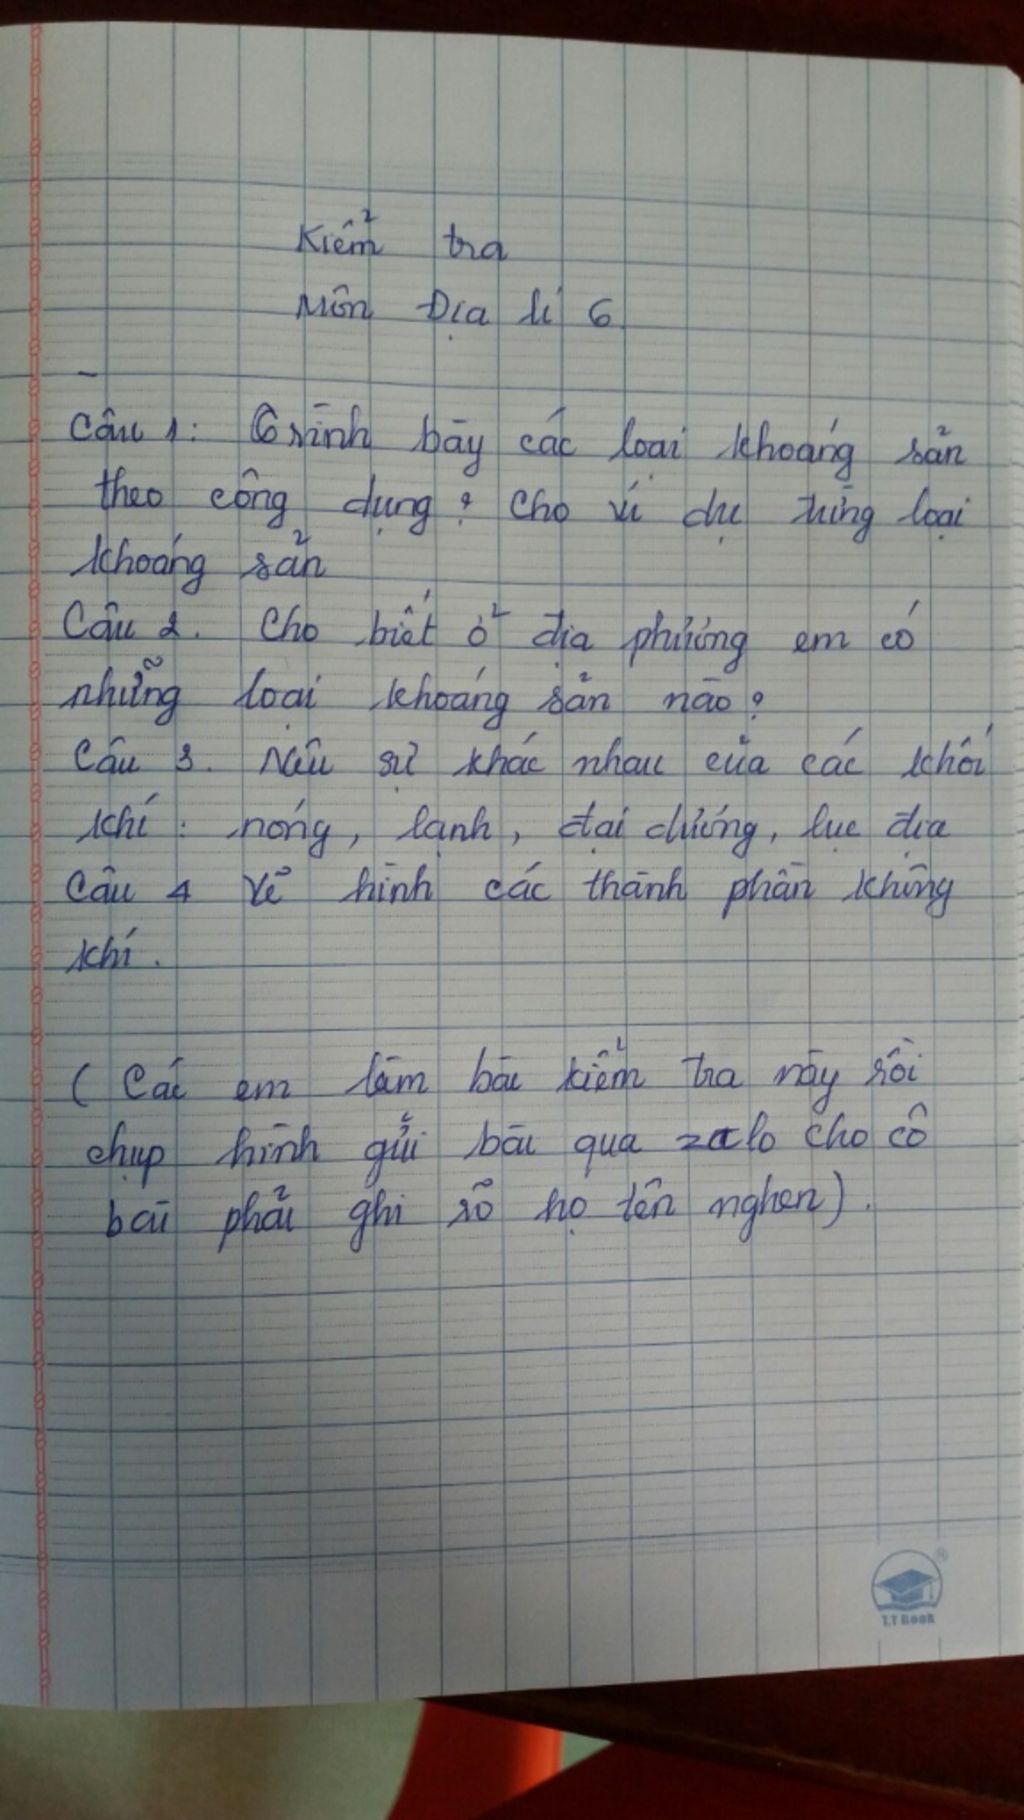 Kiểm tra
Môn Địa lí 6
Câu 1: Trình bày các loại khoáng sản
theo công dụng? Cho ví dụ từng loại
khoáng sản
Câu 2. Cho biết ở địa phương em có
những loại khoáng sản nào?
Câu 3. Nêu sự khác nhau của các khối
khí: nóng, lạnh, đại dương, lục địa
Câu 4 Vẽ hình các thành phần không
khí.
(Các em làm bài kiểm tra này rồi
chụp hình gửi bài qua zalo cho cô
bài phải ghi rõ họ tên nghen).
T.T Book